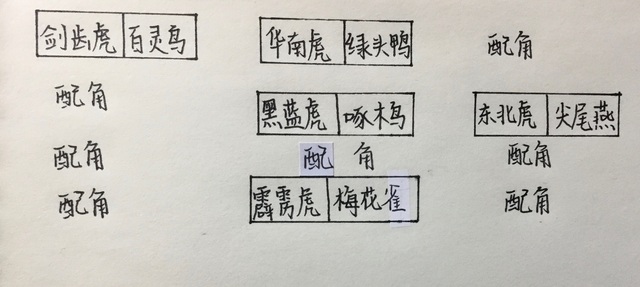 剑齿虎 百灵鸟 华南虎 绿头鸭 配角
配角
黑蓝虎 啄木鸟 东北虎 尖尾燕
配角 配角 配角
配角 霹雳虎 梅花雀 配角